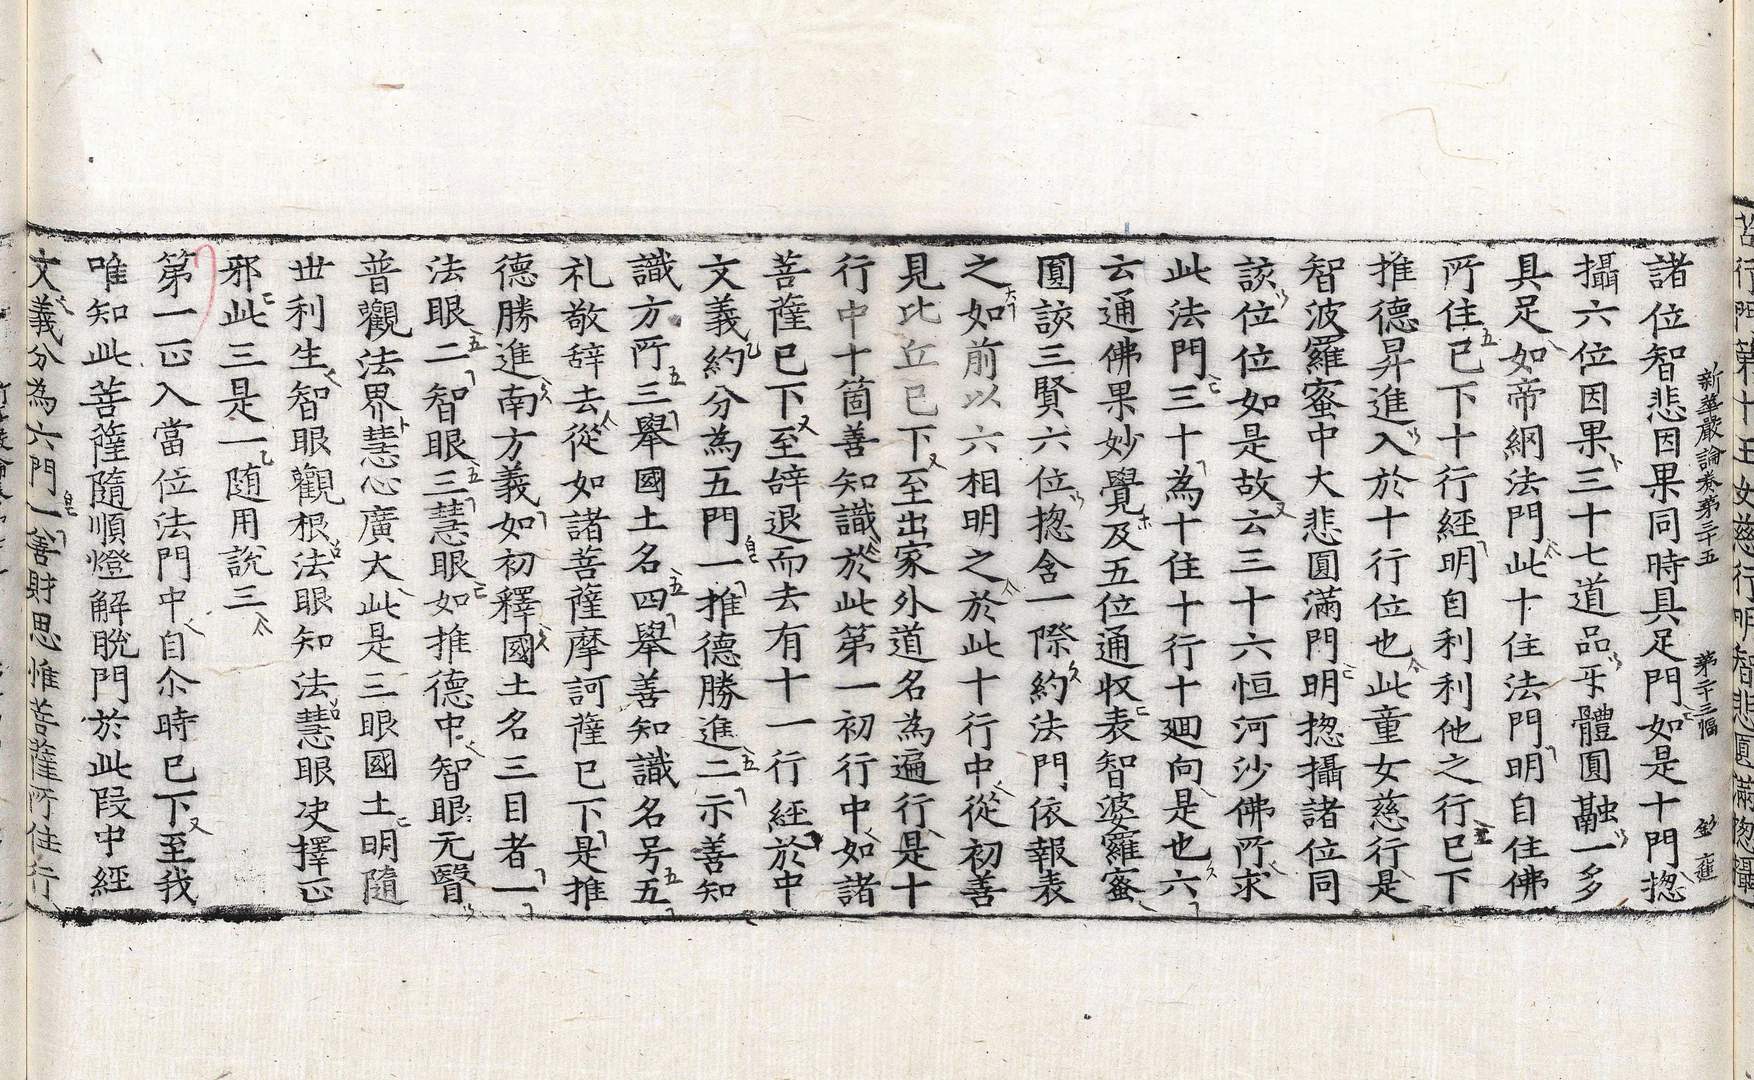 新華嚴論卷第三十五　第二十三幅
諸位智悲因果同時具足門如是十門揔
攝六位因果三十七道品牙體圓融一多
具足如帝網法門此十住法門明自住佛
所住已下十行經明自利利他之行已下
推德昇進入於十行位也此童女慈行是
智波羅蜜中大悲圓滿門明揔攝諸位同
該位位如是故云三十六恒河沙佛所求
此法門三十為十住十行十迴向是也六
云通佛果妙覺及五位通収表智婆羅蜜
圓該三賢六位揔含一際約法門依報表
之如前以六相明之於此十行中從初善
見比丘已下至出家外道名為遍行是十
行中十箇善知識於此第一初行中如諸
菩薩已下至辞退而去有十一行經於中
文義約分為五門一推德勝進二示善知
識方所三舉國土名四舉善知識名号五
礼敬辞去從如諸菩薩摩訶薩已下是推
德勝進南方義如初釋國土名三目者一
法眼二智眼三慧眼如推德中智眼无瞖
普觀法界慧心廣大此是三眼國土明隨
世利生智眼觀根法眼知法慧眼决擇正
邪此三是一随用說三
第一正入當位法門中自尒時已下至我
唯知此菩薩隨順燈解脫門於此段中經
文義分為六門一善財思惟菩薩所住行